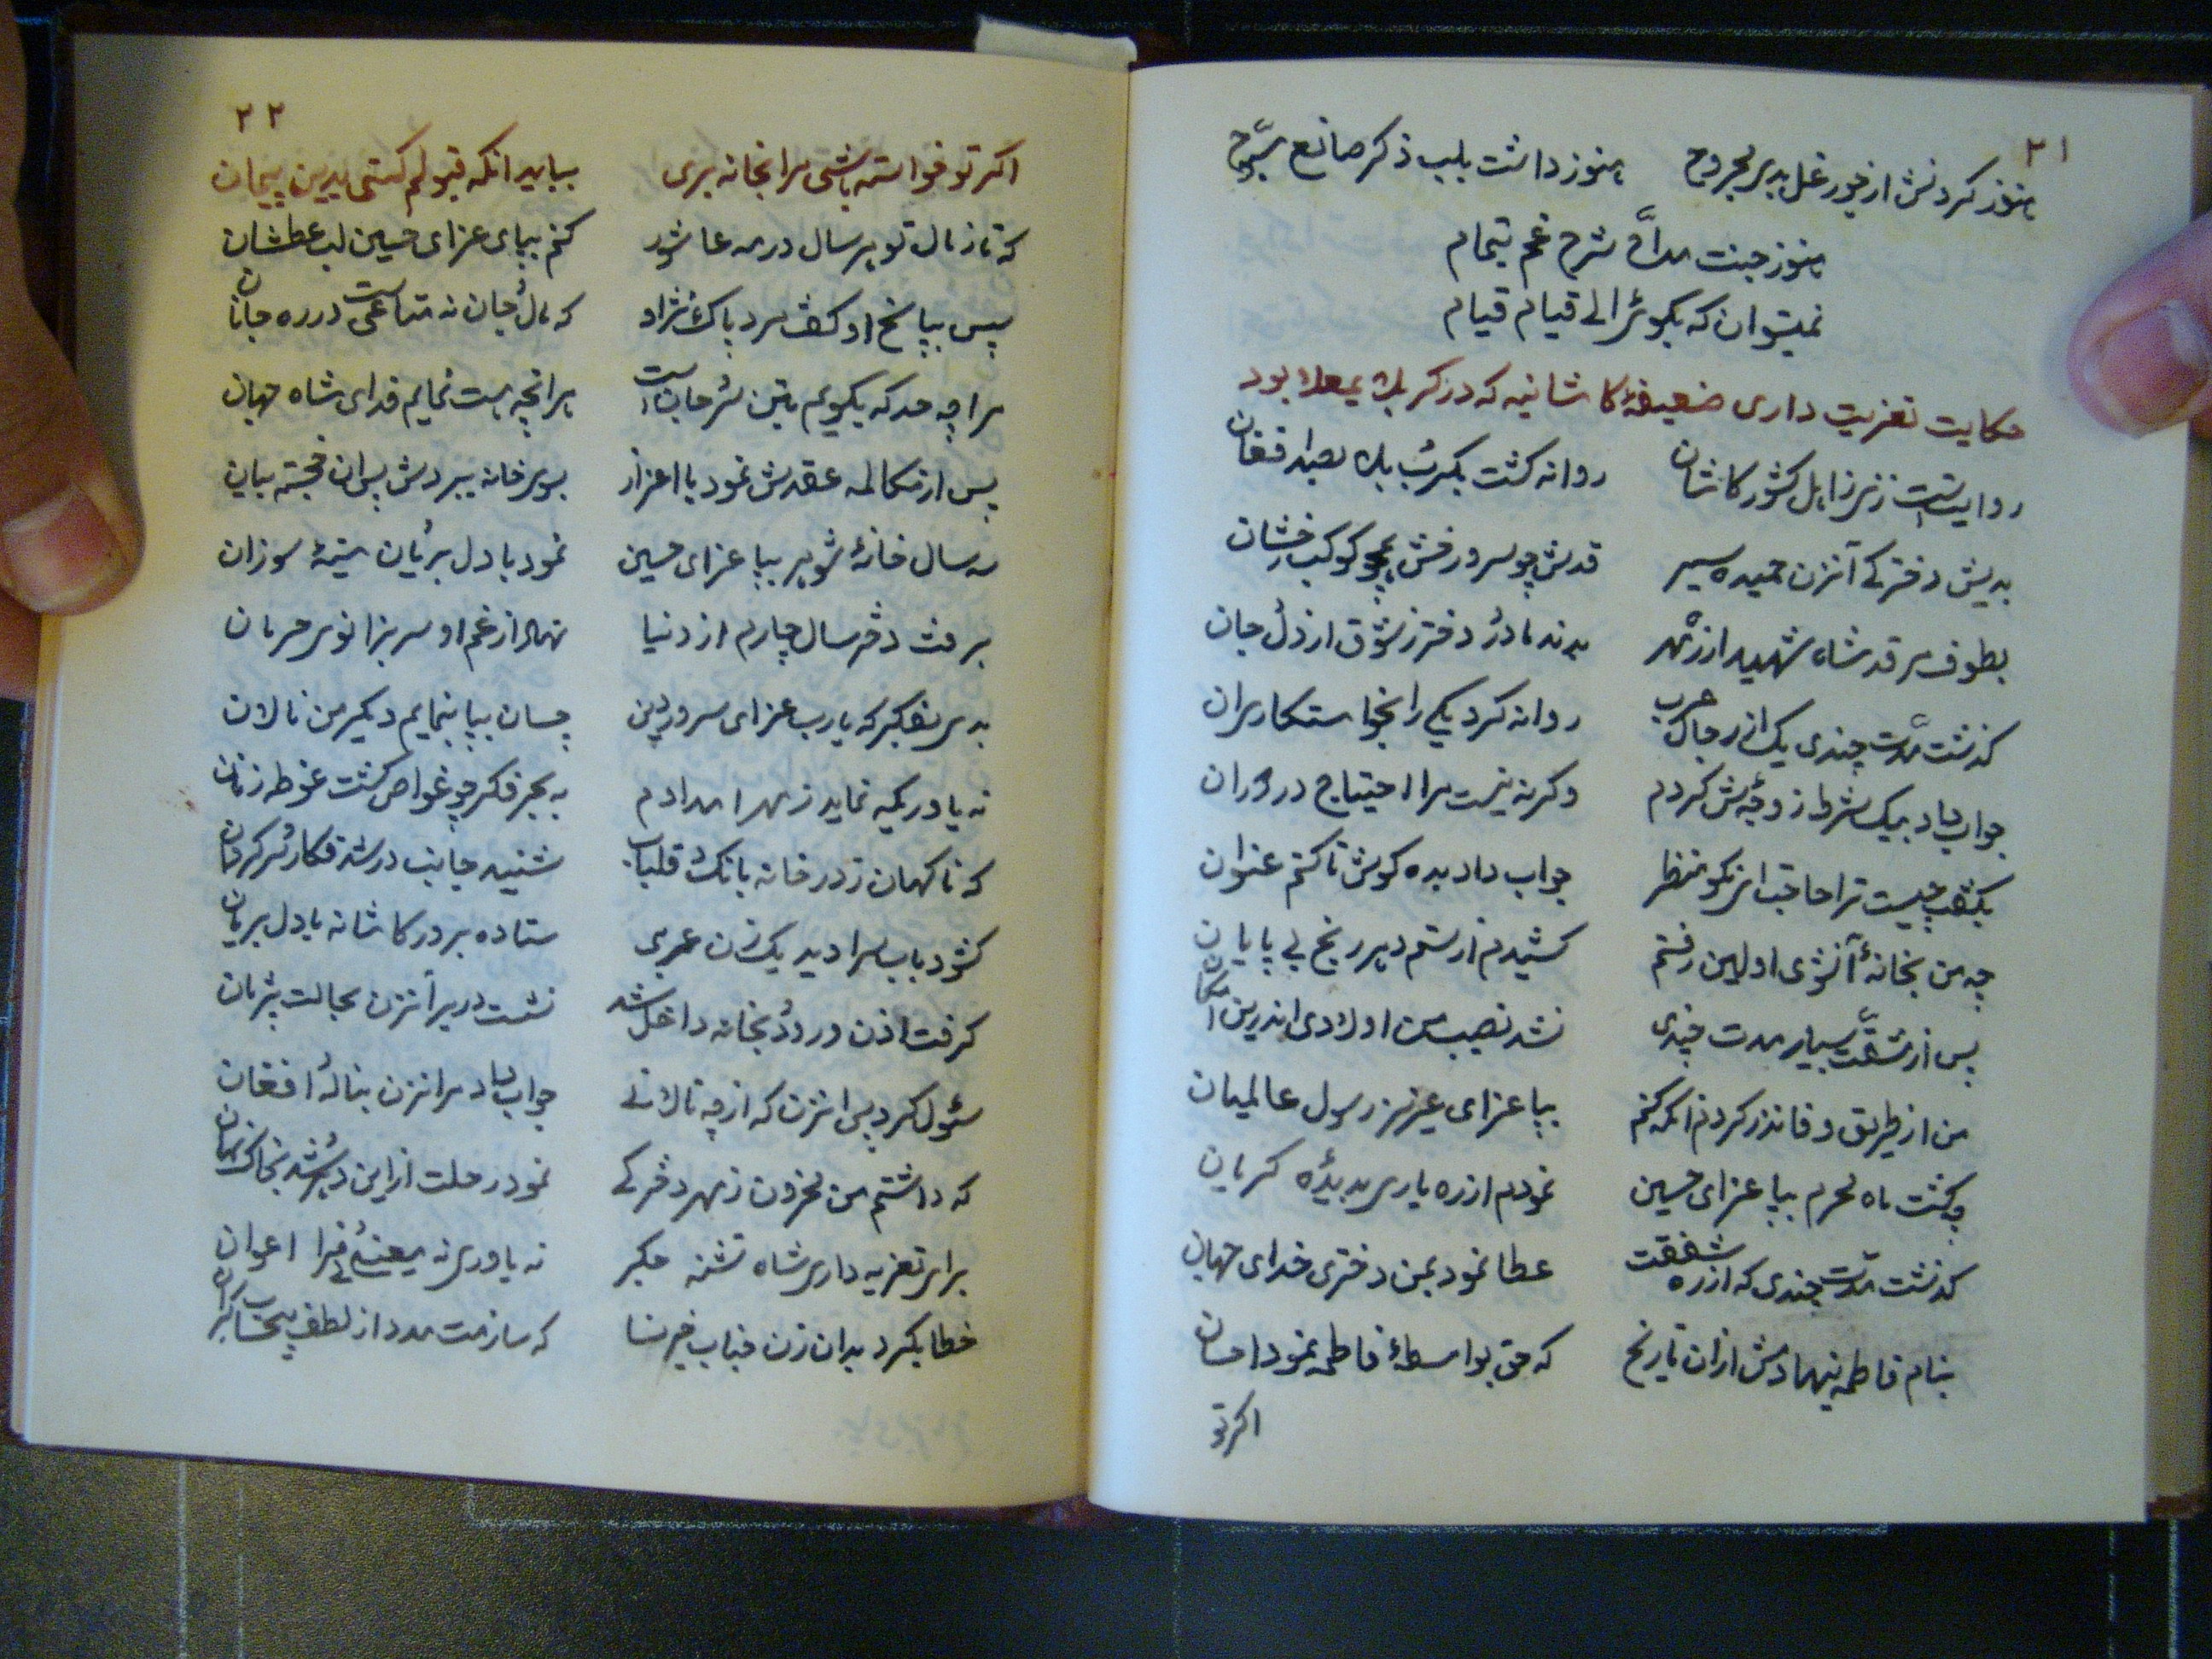 ۲۱
هنوز گردنش از جور غل بدی مجروح هنوز داشت بلب ذکر صانع سبّوح
هنوز جنت مداّح شرح غم بتمام
نمیتوان که بگوئی الی قیام قیام
حکایت تعزیت داری ضعیفهٔ کاشانیه که در کربلای معلا بود
روایتست زنی ز اهل کشور کاشان روانه گشت بکرب بلا بصد افغان
بدیش دخترکی آنزن حمیده سیر قدش چو سرو رخش همچو کوکب رخشان
بطوف مرقد شاه شهید از ره مهر شدند مادر و دختر ز شوق از دل و جان
گذشت مدّت چندی یک از رجال عرب روانه کرد یکی را بخواستکاری ان
جواب داد بیک شرط زوجه‌ش گردم وگرنه نیست مرا احتیاج در دوران
بگفت چیست ترا حاجت ای نکو منظر جواب داد بده گوش تا کنم عنوان
چه من بخانهٔ آنشوی اولین رفتم کشیدم از ستم دهر رنج بی پایان
پس از مشقّت بسیار مدت چندی نشد نصیب من اولادی اندرین امکان
من از طریق وفا نذر کردم انکه کنم بپا عزای عزیز رسول عالمیان
چه گشت ماه محرم بپا عزای حسین نمودم از ره یاری بدیدهٔ گریان
گذشت مدّت چندی که از ره شفقت عطا نمود بمن دختری خدای جهان
بنام فاطمه بنهادمش ازان تاریخ که حق بواسطهٔ فاطمه نمود احسان
اگر تو
۲۲
اگر تو خواسته باشی مرا بخانه بری بباید انکه قبولم کنی بدین پیمان
که تا ز مال تو هر سال در مه عاشور کنم بپای عزای حسین لب عطشان
سپس بپاسخ او گفت مرد پاک نژاد که مال و جان نه متاعیست در ره جانان
مرا چه حد که بگویم بتن سر و جان است هر انچه هست نمایم فدای شاه جهان
پس از مکالمه عقدش نمود با اعزاز بسوی خانه ببردش پس ان خجسته بیان
سه سال خانهٔ شوهر بپا عزای حسین نمود با دل بریان و سینهٔ سوزان
برفت دختر سال چارم از دنیا نهاد از غم او سر بزانوی حرمان
بدی بفکر که یا رب عزای سرور دین چسان بپا بنمایم دیگر من نالان
نه یاوریکه نماید ز مهر امدادم به بحر فکر چو غواص گشت غوطه زنان
که ناگهان ز در خانه بانک دق الباب شنید جانب در شد فکار و سر گردان
گشود باب سرا دید یک زن عربی ستاده بر در کاشانه با دل بریان
گرفت اذن ورود و بخانه داخل شد نشست در بر آنزن بحالت پژمان
سئول کرد پس انزن که از چه نالانی جواب داد مر انزن بناله و افغان
که داشتم من محزون ز مهر دخترکی نمود رحلت از این دهر و شد بخاک نهان
برای تعزیه داری شاه تشنه جگر نه یاوری نه معینی نی مرا اعوان
خطاب کرد بدان زن جناب خیر نسا که سازمت مدد از لطف بیحساب و کران